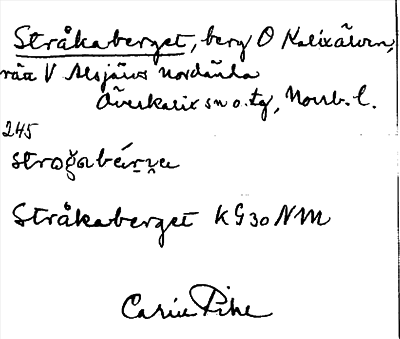 Stråkaberget, berg O Kalixälven,
rätt V Alsjärvs nordända
Överkalix sn o. tg, Norrb. l.
245
Stråkaberget KG30 NM
Carin Pihl